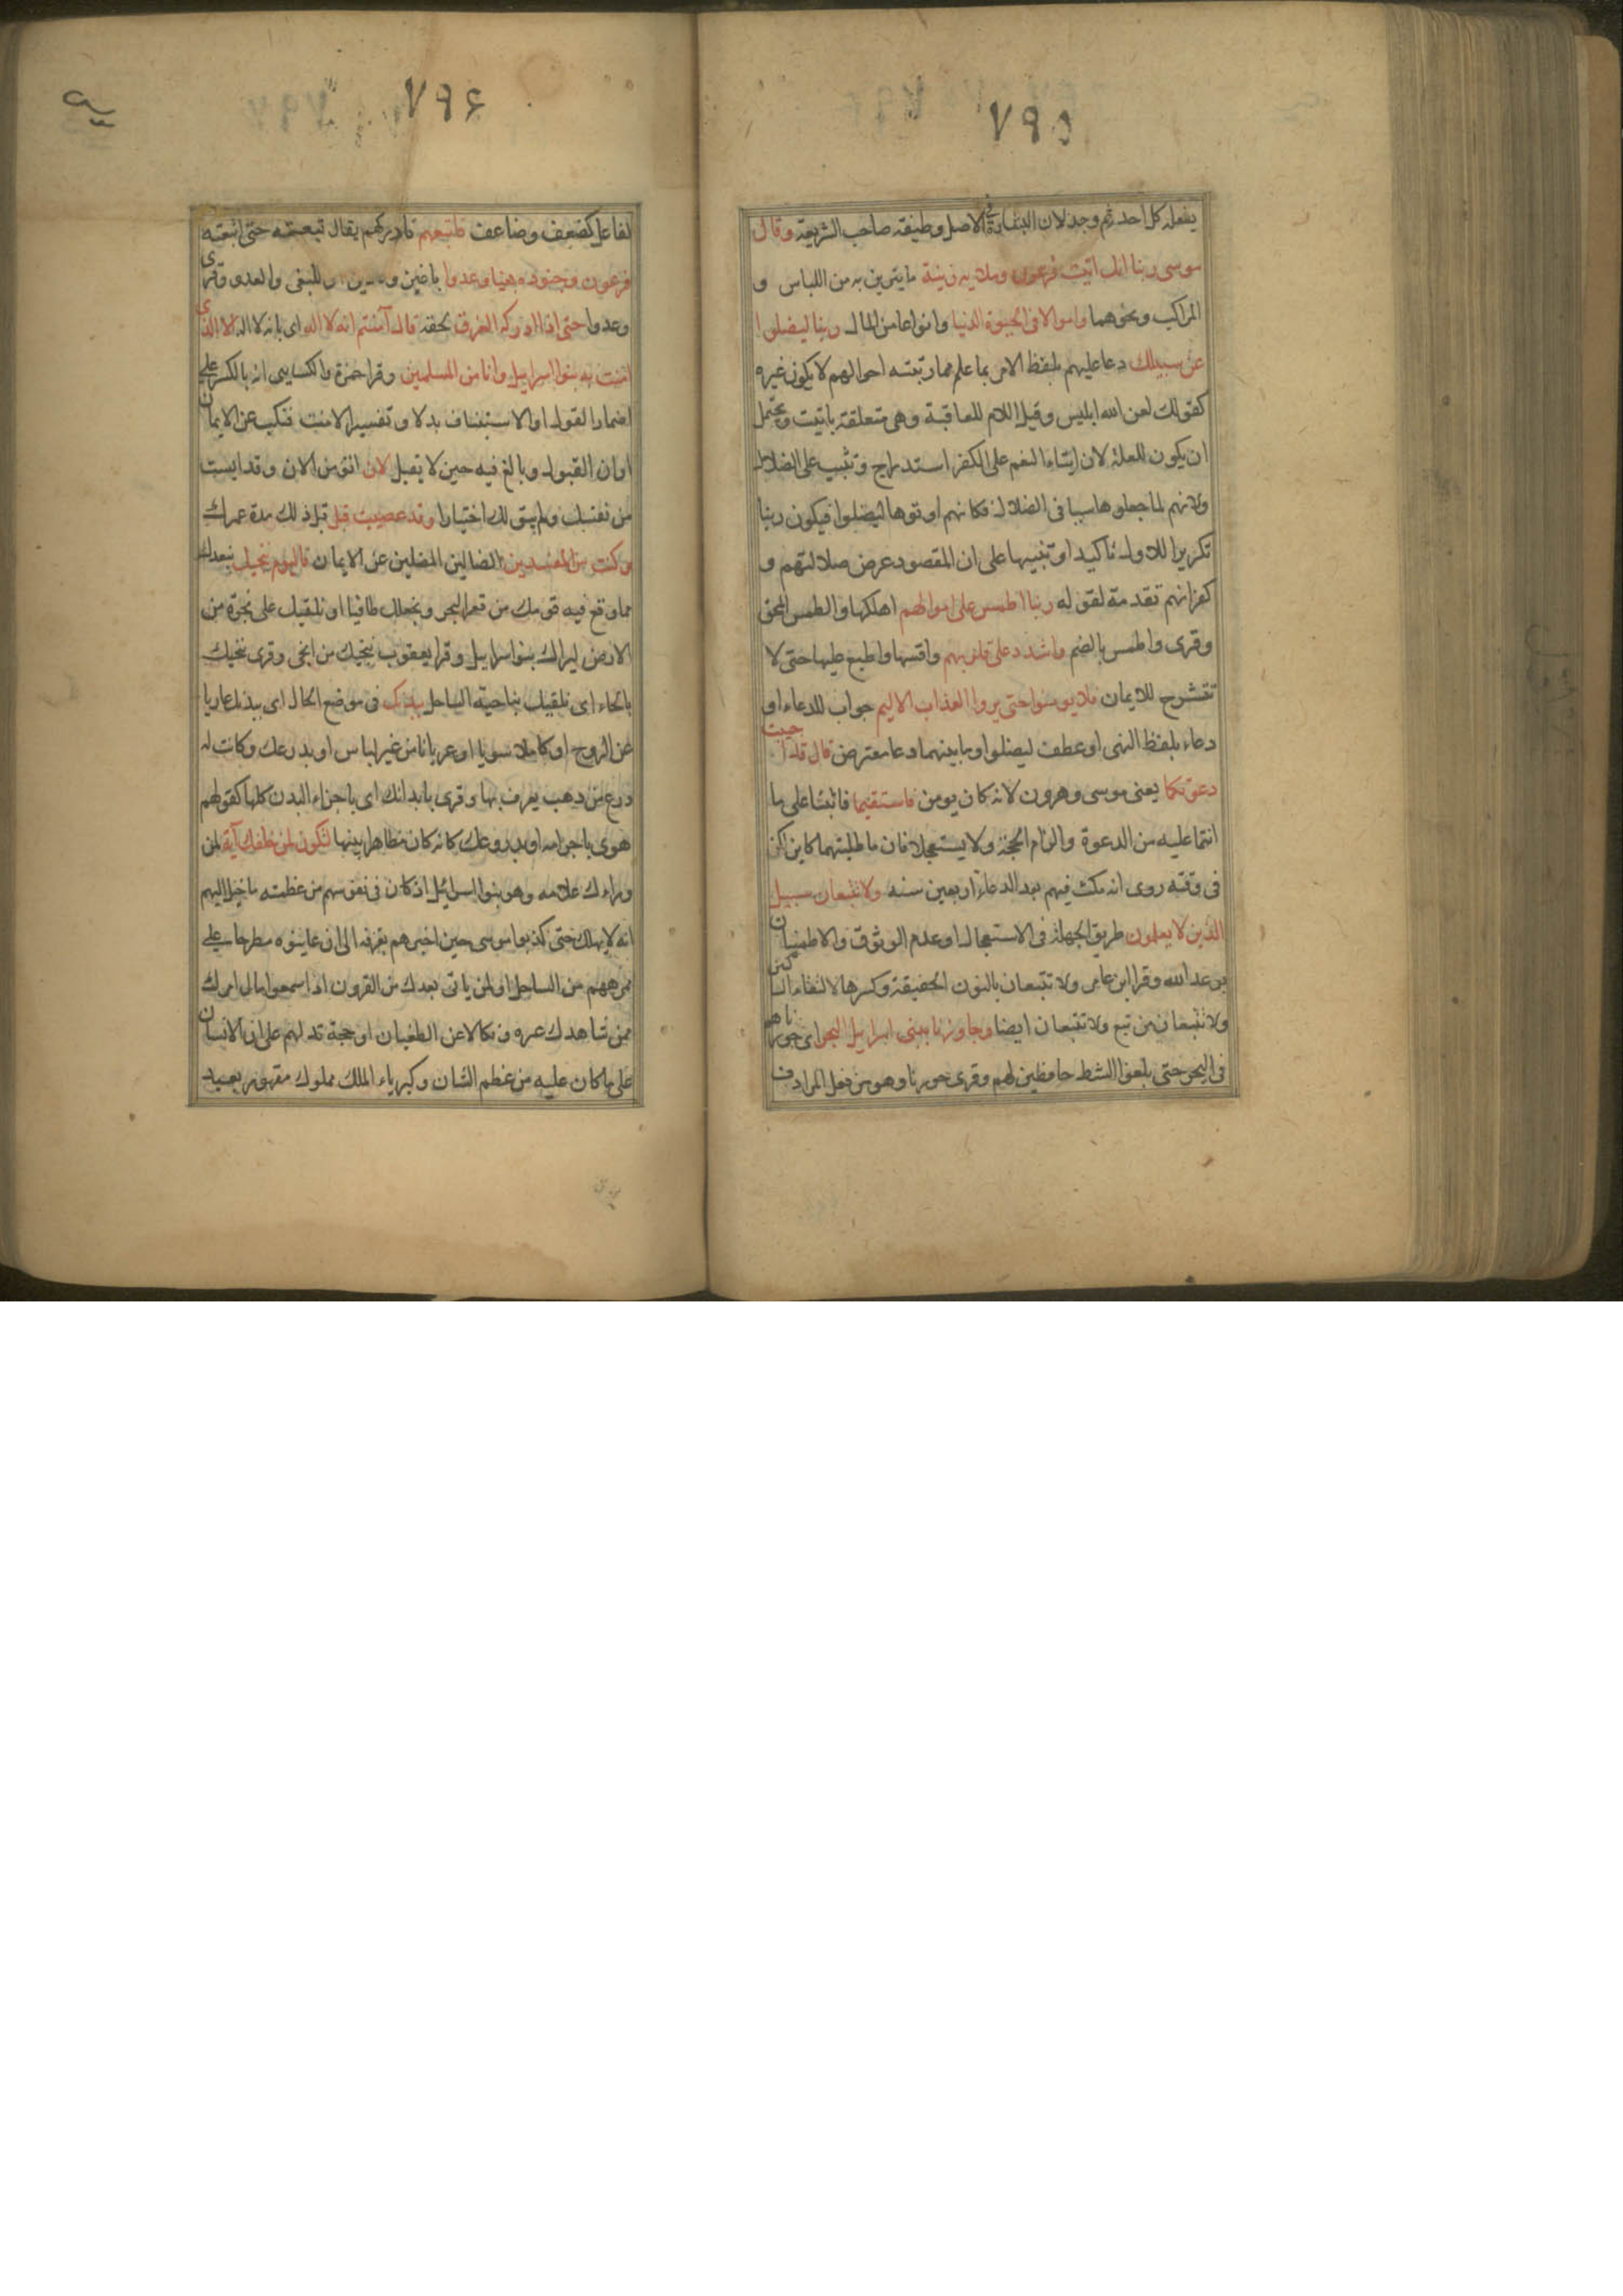 ٧٩٥
يفعله كل احد ثم وجد لان البشارة فى الاصل وظيفة صاحب الشريعة وقال
موسى ربنا انك اتيت فرعون وملايه زينة ما يتزين به من اللباس و
المراكب ونحوهما واموالا فى الحيوة الدنيا وانواعا من المال ربنا ليضلوا
عن سبيلك دعا عليهم بلفظ الامر بما علم مما رتبته احوالهم لا يكون غيره
كقولك لعن الله ابليس وقيل اللام للعاقبة وهى متعلقة باتيت ويحتمل
ان يكون للعلة لان ايتاء النعم على الكفر استدراج وتثبيت على الضلال
ولانهم لما جعلوها سببا فى الضلال فكانهم اوتوها ليضلوا فيكون ربنا
تكريرا للاول تاكيدا وتنبيها على ان المقصود عرض ضلالتهم و
كفرانهم تقدمة لقوله ربنا اطمس على اموالهم اهلكها والطمس المحق
وقرى واطمس بالضم واشدد على قلوبهم واقسها واطبع عليها حتى لا
تنشرح للايمان فلا يومنوا حتى يروا العذاب الاليم جواب للدعاء او
دعاء بلفظ النهى او عطف ليضلوا وما بينهما دعا معترض قال قد اجيبت
دعوتكما يعنى موسى وهرون لانه كان يومن فاستقيما فاثبتا على ما
انتما عليه من الدعوة والزام الحجة ولا يستعجلا فان ما طلبتهما كاين لكن
فى وقته روى انه مكث فيهم بعد الدعاء اربعين سنه ولا تتبعان سبيل
الذين لا يعلمون طريق الجهلة فى الاستعجال او عدم الوثوق والاطمينان
بوعد الله وقرا ابن عامر ولا تتبعان بالنون الخفيفة وكسرها لالتقاء الساكنين
ولا تتبعان من تبع ولا تتبعان ايضا وجاوزنا ببنى اسرايل البحر اى جوزناهم
فى البحر حتى بلغوا الشط حافظين لهم وقرى جوزنا وهو من فعل المرادف
٧٩۶
لفاعل كضعف وضاعف فاتبعهم فادركهم يقال تبعته حتى اتبعته
فرعون وجنوده بغيا وعدوا باغين وعادين او للبغى والعدو وقرى
وعدوا حتى اذا ادركه الغرق لحقه قال آمنتم انه لا اله اى بانه لا اله الا الذى
امنت به بنوا اسرايل وانا من المسلمين وقرا حمزة والكسايى انه بالكسر على
اضمار القول او الاستيناف بدلا وتفسيرا لامنت فنكب عن الايمان
اوان القبول وبالغ فيه حين لا يقبل الان اتؤمن الان وقد ايست
من نفسك ولم يبق لك اختيارا وقد عصيت قبل قبل ذلك مدة عمرك
وكنت من المفسدين الضالين المضلين عن الايمان فاليوم ننجيك نبعدك
مما وقع فيه قومك من قعر البحر ونجعلك طافيا او نلقيك على نجوة من
الارض ليراك بنوا اسرايل وقرا يعقوب ننجيك من انجى وقرى ننحيك
بالحاء اى نلقيك بناحية الساحل ببدنك فى موضع الحال اى ببدنك عاريا
عن الروح او كاملا سويا او عريانا من غير لباس او بدرعك وكانت له
درع من ذهب يعرف بها وقرى بابدانك اى باجزاء البدن كلها كقولهم
هوى باجرامه او بدروعك كانه كان مظاهرا بينها لتكون لمن خلفك آية لمن
وراءك علامه وهو بنوا اسرائيل اذ كان فى نفوسهم من عظمته ما خيل اليهم
انه لا يهلك حتى كذبوا موسى حين اخبرهم بغرقه الى ان عاينوه مطرحا على
ممرهم من الساحل او لمن ياتى بعدك من القرون اذا سمعوا مال امرك
ممن شاهدك عبره ونكالا عن الطغيان او حجة تدلهم على ان الانسان
على ما كان عليه من عظم الشان وكبرياء الملك مملوك مقهور بعيد